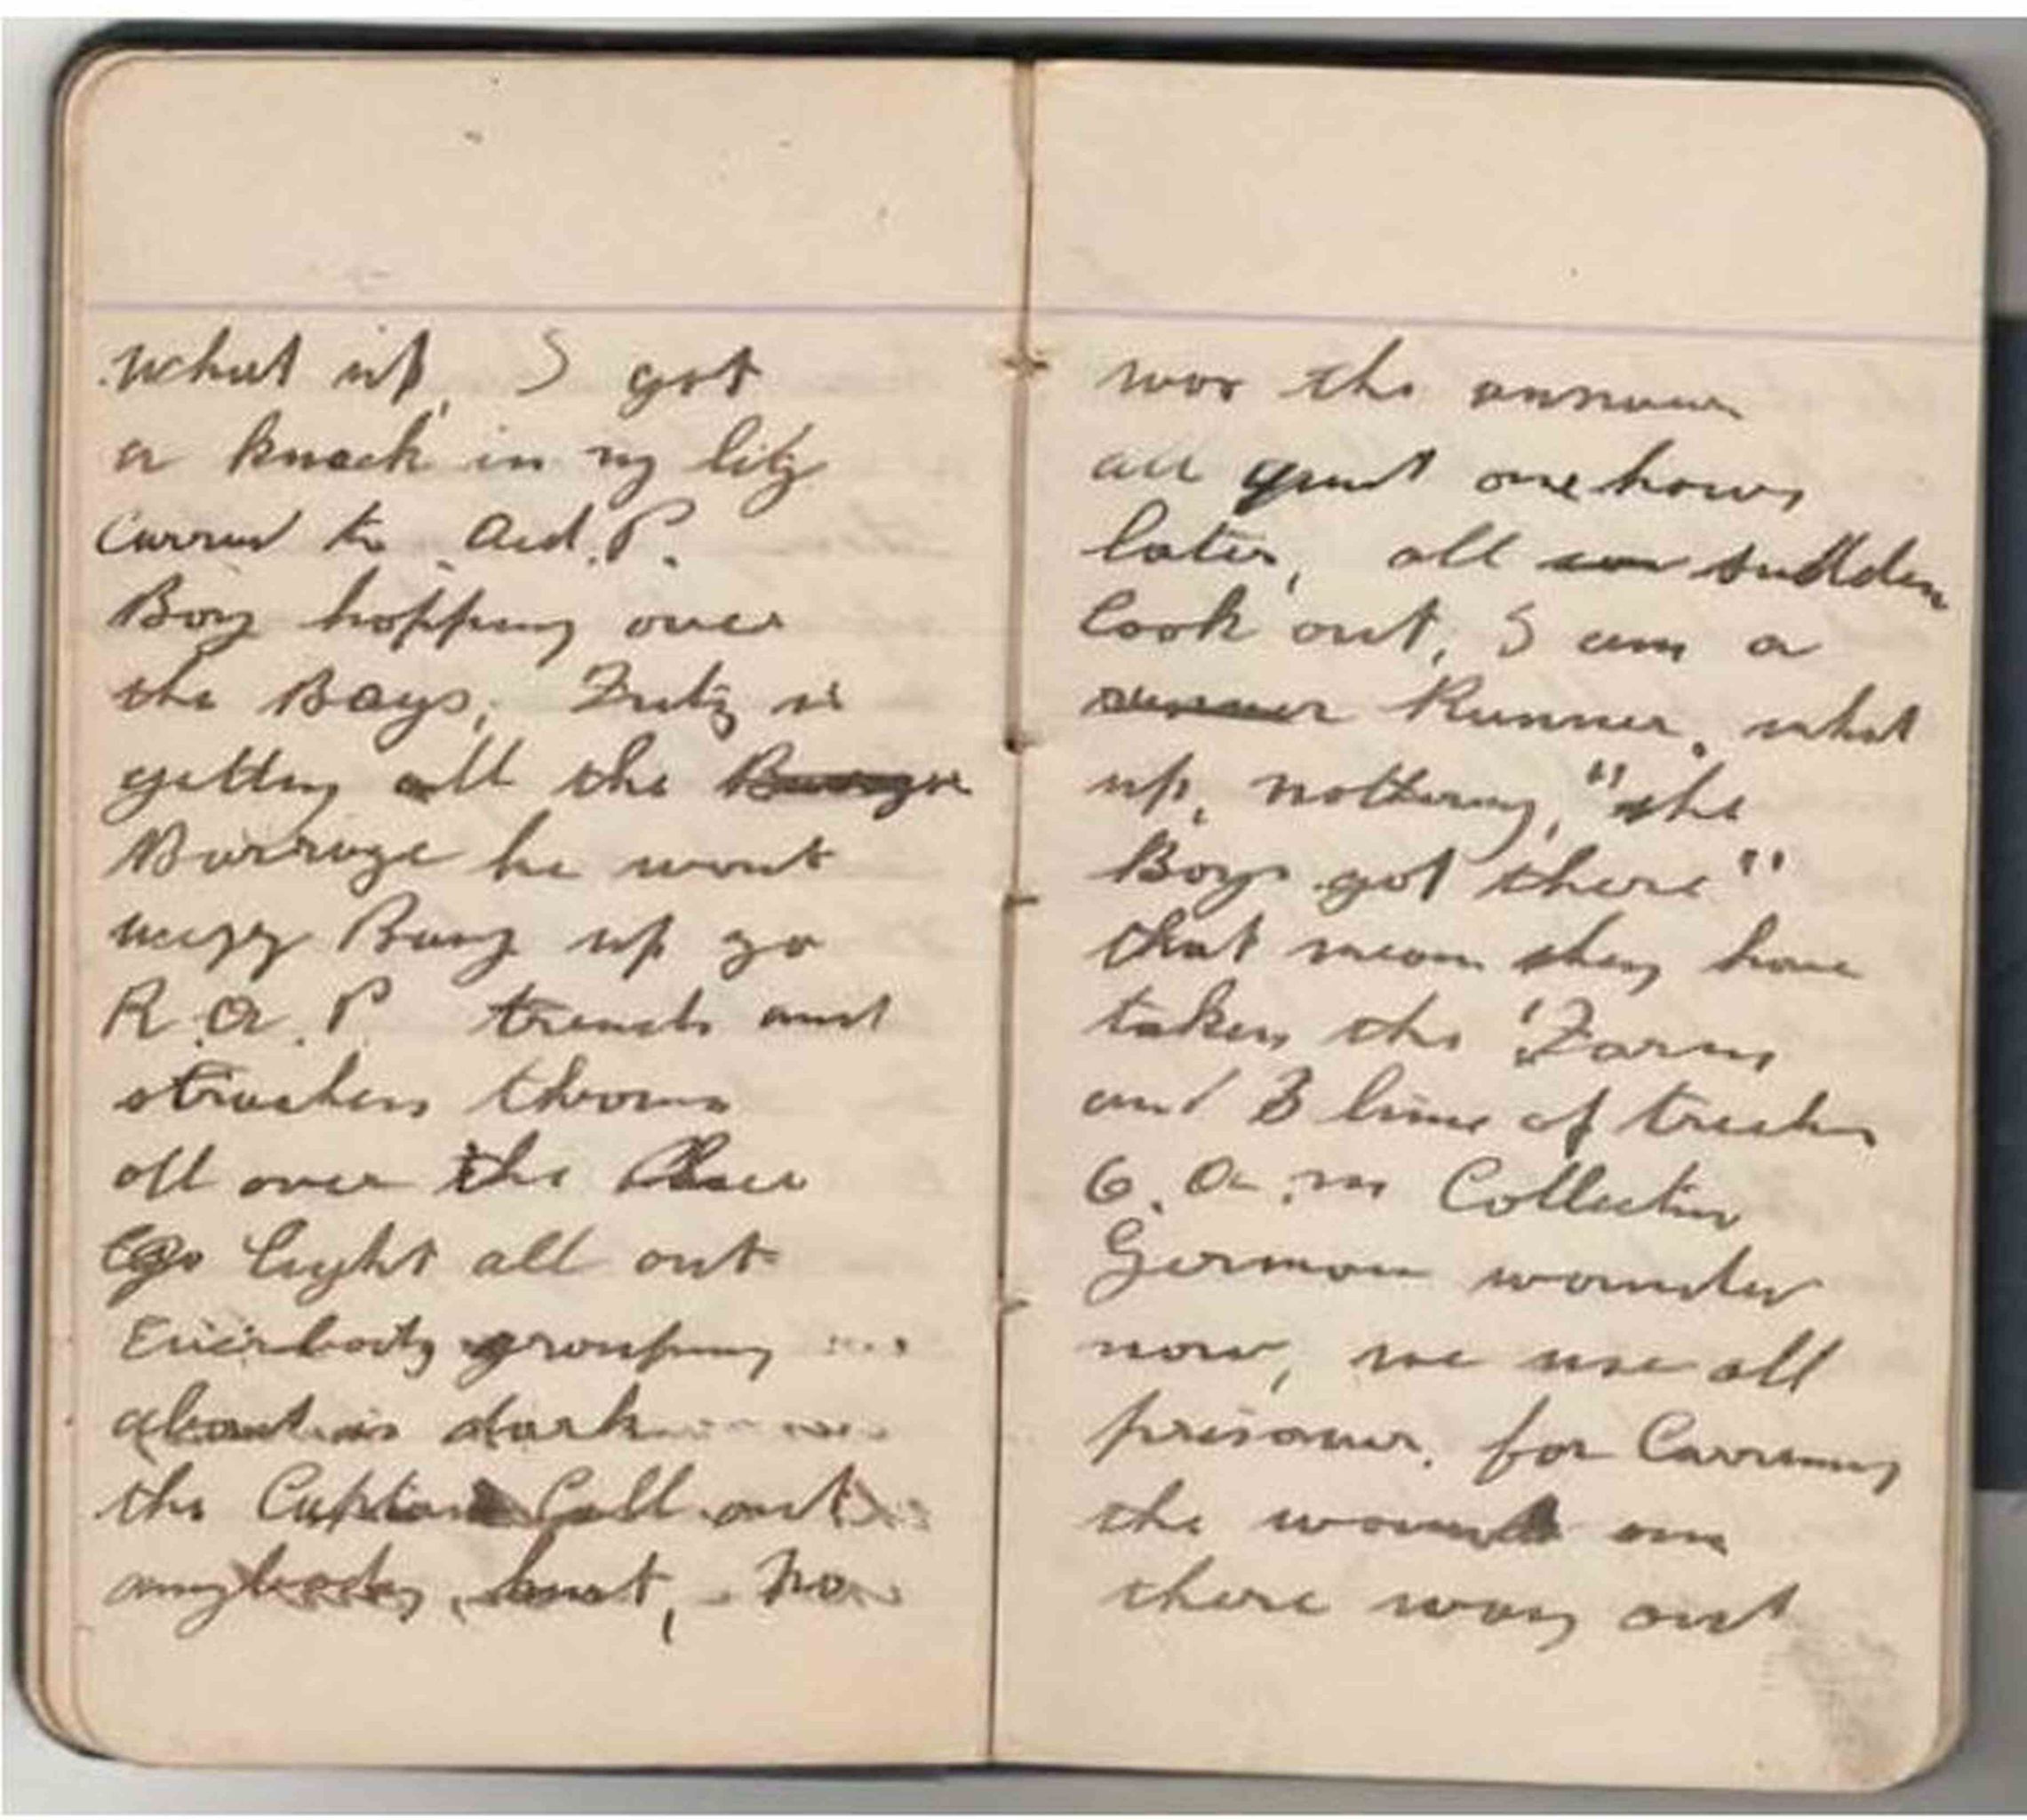 what up, I got
a knock in my leg
Carried to Aid. P.
Boy hopping over
the Bags, Fritz is
getting all the
Barrage he want
Bang up go
R.A.P trench and
stretchers thrown
all over the
light all out
Everbody grouping
about in dark
the Captain Call out
anybody hurt, No
was the answer
all quiet one hours
later, all sudden
look out, I am a
runner Runner. what
up, nothing, "the
Boys got there"
that mean they have
taken the "Farm
and 3 line of treches
6.a.m Collecting
German wounded
now, we use all
prisoner. for Carrying
the wounded on
there way out